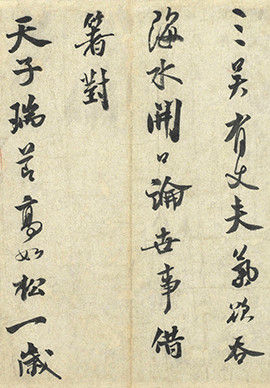 三吳有丈夫氣欲吞
海水開口論世事借
箸對
天子瑞芝高如松一歲